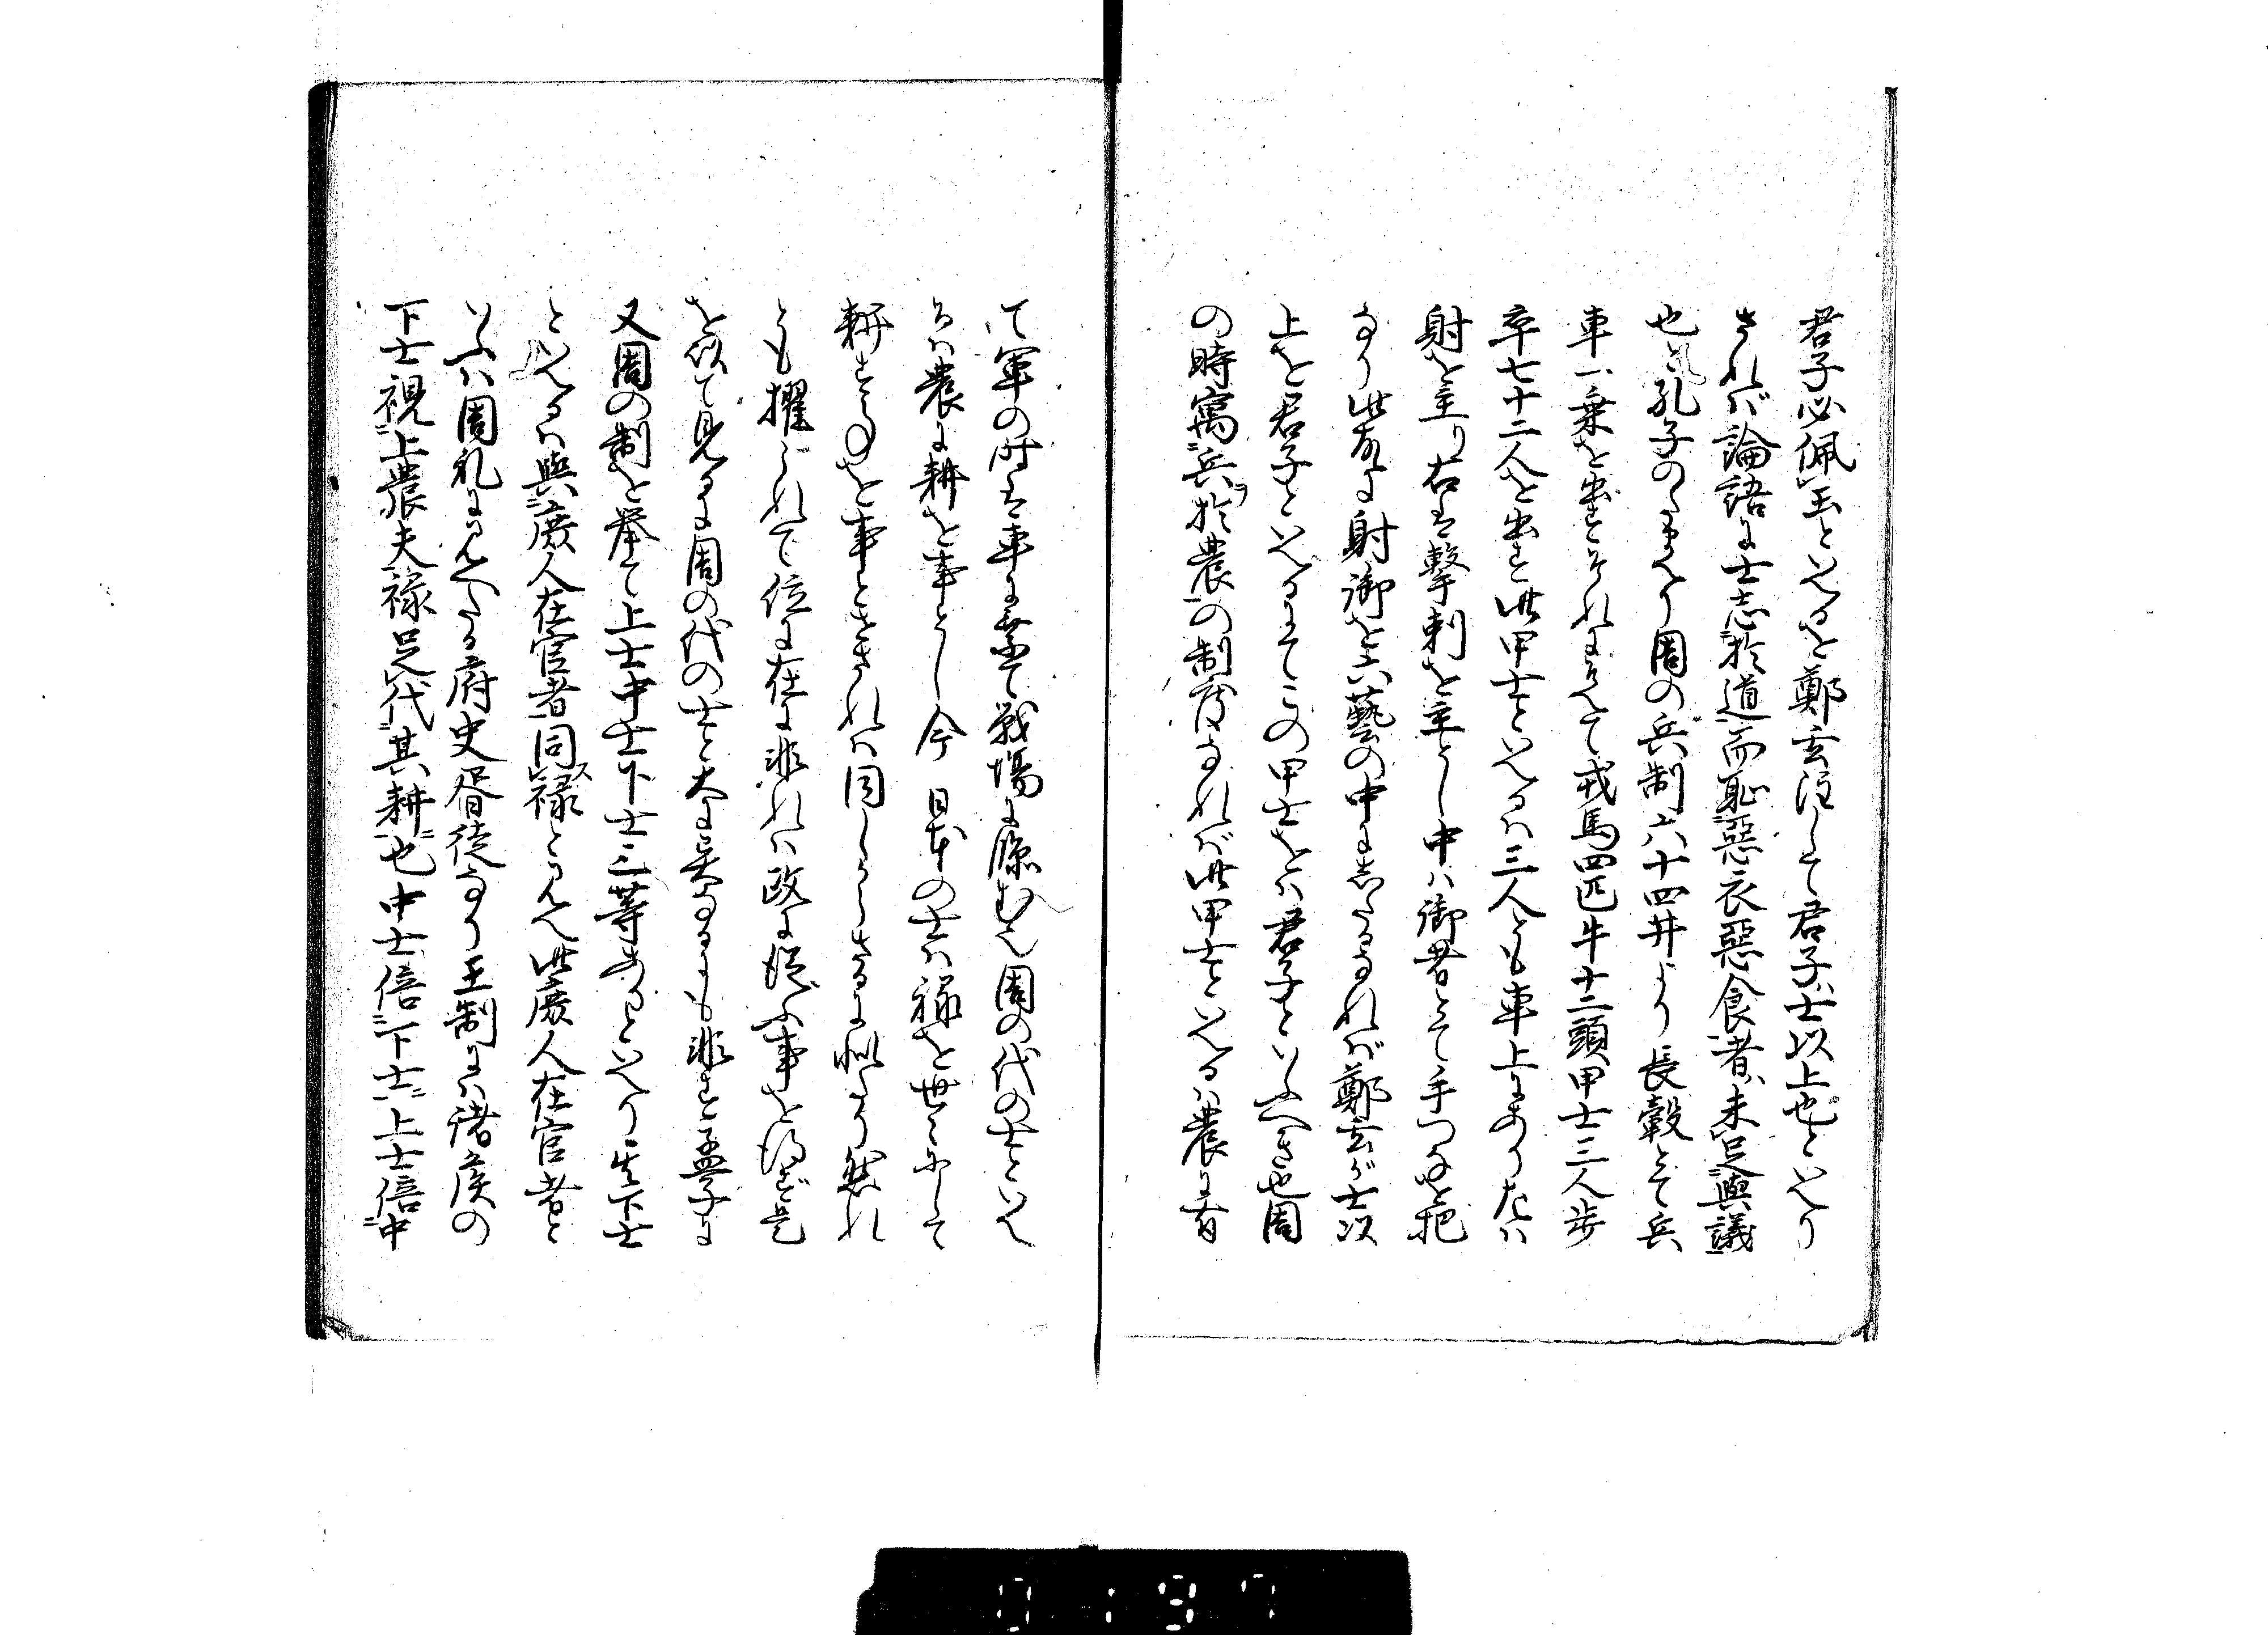 君子必佩玉といへるを鄭玄注して君子ハ士以上也といへり
されば論語に士志於道而恥惡衣惡食者ハ未足與議
也と孔子のたまへり周の兵制六十四井より長轂とて兵
車一乗を出すそれにそへて戎馬四匹牛十二頭甲士三人歩
卒七十二人を出す此甲士といへるハ三人とも車上にあり左ハ
射を主り右は撃刺を主とし中ハ御者とて手つなを把
なり此故に射御を六藝の中に志たるなれば鄭玄が士以
上を君子といへるにてこの甲士をハ君子といふへき也周
の時寓兵ヲ於農の制度なれば此甲士といへるハ農に有
て軍の時は車に乗て戦場に臨むん周の代の士といへ
るハ農に耕を事とし今日本の士ハ禄を世々にして
耕すことを事とせされハ同しからさるに似たり然れ
とも擢られて位に在に非れハ政に従ふ事を得ず是
を以て見るに周の代の士と大に異なるにも非す孟子に
又周の制を挙て上士中士下士三等ありといへり其下士
といへるハ與庶人在官者同禄スと見へ此庶人在官者と
いふハ周礼に見へたる府史胥徒なり王制にハ諸侯の
下士視上農夫禄足代其耕也中士倍下士上士倍中